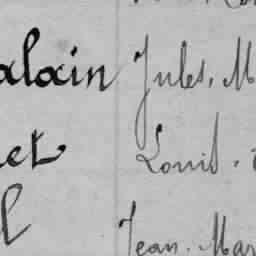 alain Jules, M
et Louis.
l Jean. Mar